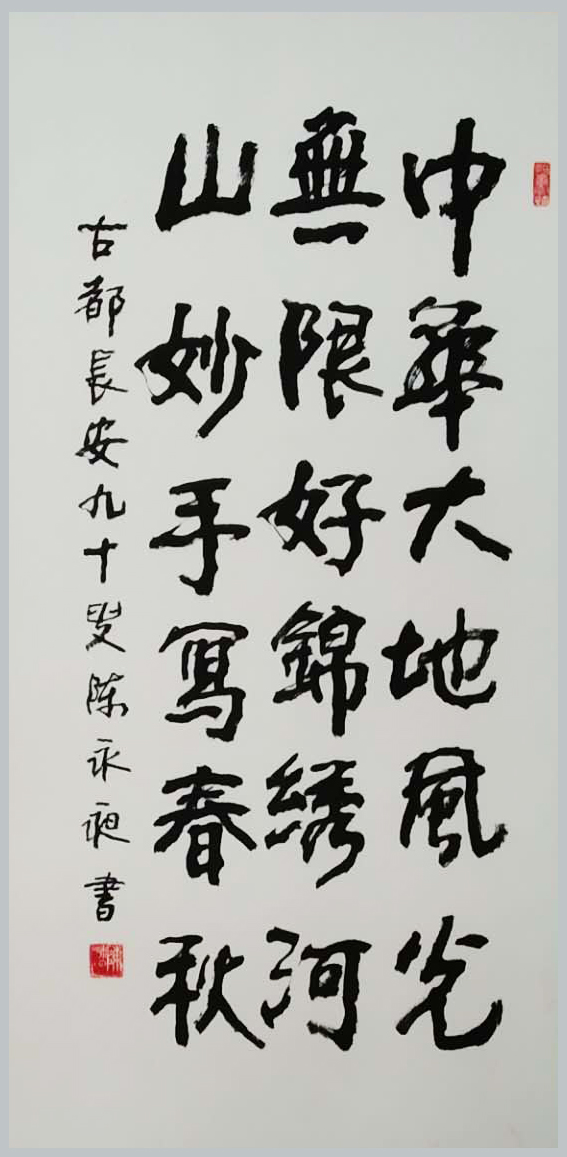 中華大地風光
無限好錦綉河
山妙手寫春秋
古都長安九十叟陈永昶書